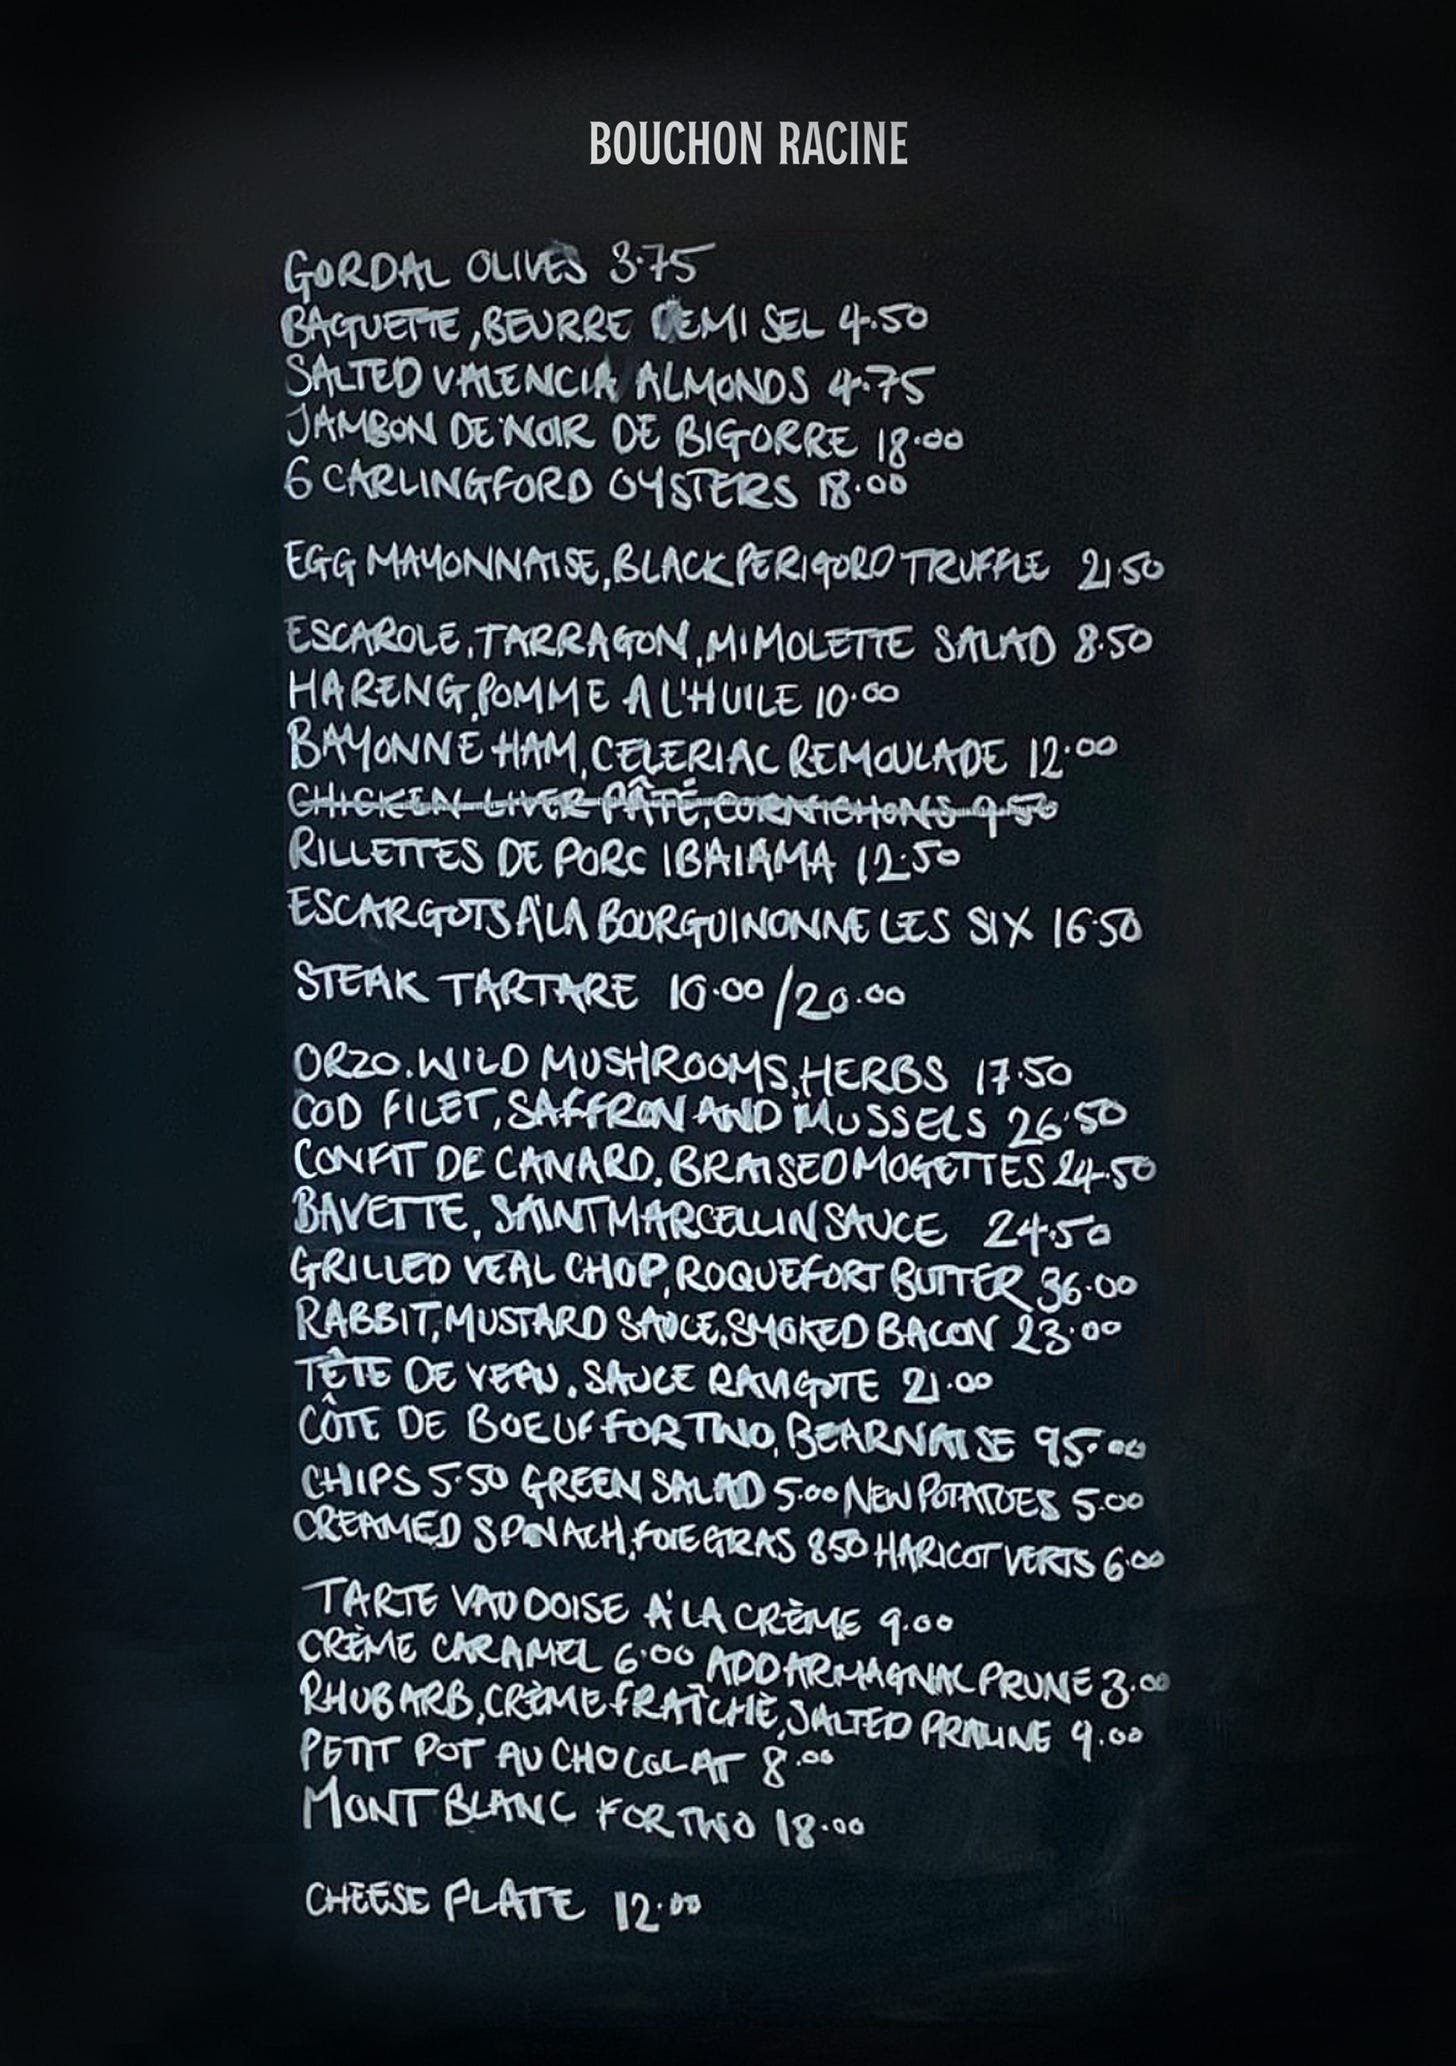 BOUCHON RACINE
GORDAL OLIVES 3.75
BAGUETTE, BEURRE DEMI SEL 4.50
SALTED VALENCIA ALMONDS 4.75
JAMBON DE NOIR DE BIGORRE 18.00
6 CARLINGFORD OYSTERS 18.00
EGG MAYONNAISE, BLACK PERIGORD TRUFFLE 21.50
ESCAROLE, TARRAGON, MIMOLETTE SALAD 8.50
HARENG, POMME A L'HUILE 10.00
BAYONNE HAM, CELERIAC REMOULADE 12.00
CHICKEN LIVER PÂTÉ, CORNICHONS 9.50
RILLETTES DE PORC IBAIAMA 12.50
ESCARGOTS À LA BOURGUINONNE LES SIX 16.50
STEAK TARTARE 10.00/20.00
ORZO. WILD MUSHROOMS, HERBS 17.50
COD FILET, SAFFRON AND MUSSELS 26.50
CONFIT DE CANARD, BRAISED MOGETTES 24.50
BAVETTE, SAINT MARCELLIN SAUCE 24.50
GRILLED VEAL CHOP, ROQUEFORT BUTTER 36.00
RABBIT, MUSTARD SAUCE, SMOKED BACON 23.00
TÊTE DE VEAU, SAUCE RAVIGOTE 21.00
CÔTE DE BOEUF FOR TWO, BEARNAISE 95.00
CHIPS 5.50 GREEN SALAD 5.00 NEW POTATOES 5.00
CREAMED SPINACH, FOIE GRAS 850 HARICOT VERTS 6.00
TARTE VAUDOISE À LA CRÈME 9.00
CRÈME CARAMEL 6.00 ADD ARMAGNAC PRUNE 3.00
RHUBARB, CRÈME FRAÎCHE, SALTED PRALINE 9.00
PETIT POT AU CHOCOLAT 8.00
MONT BLANC FOR TWO 18.00
CHEESE PLATE 12.00